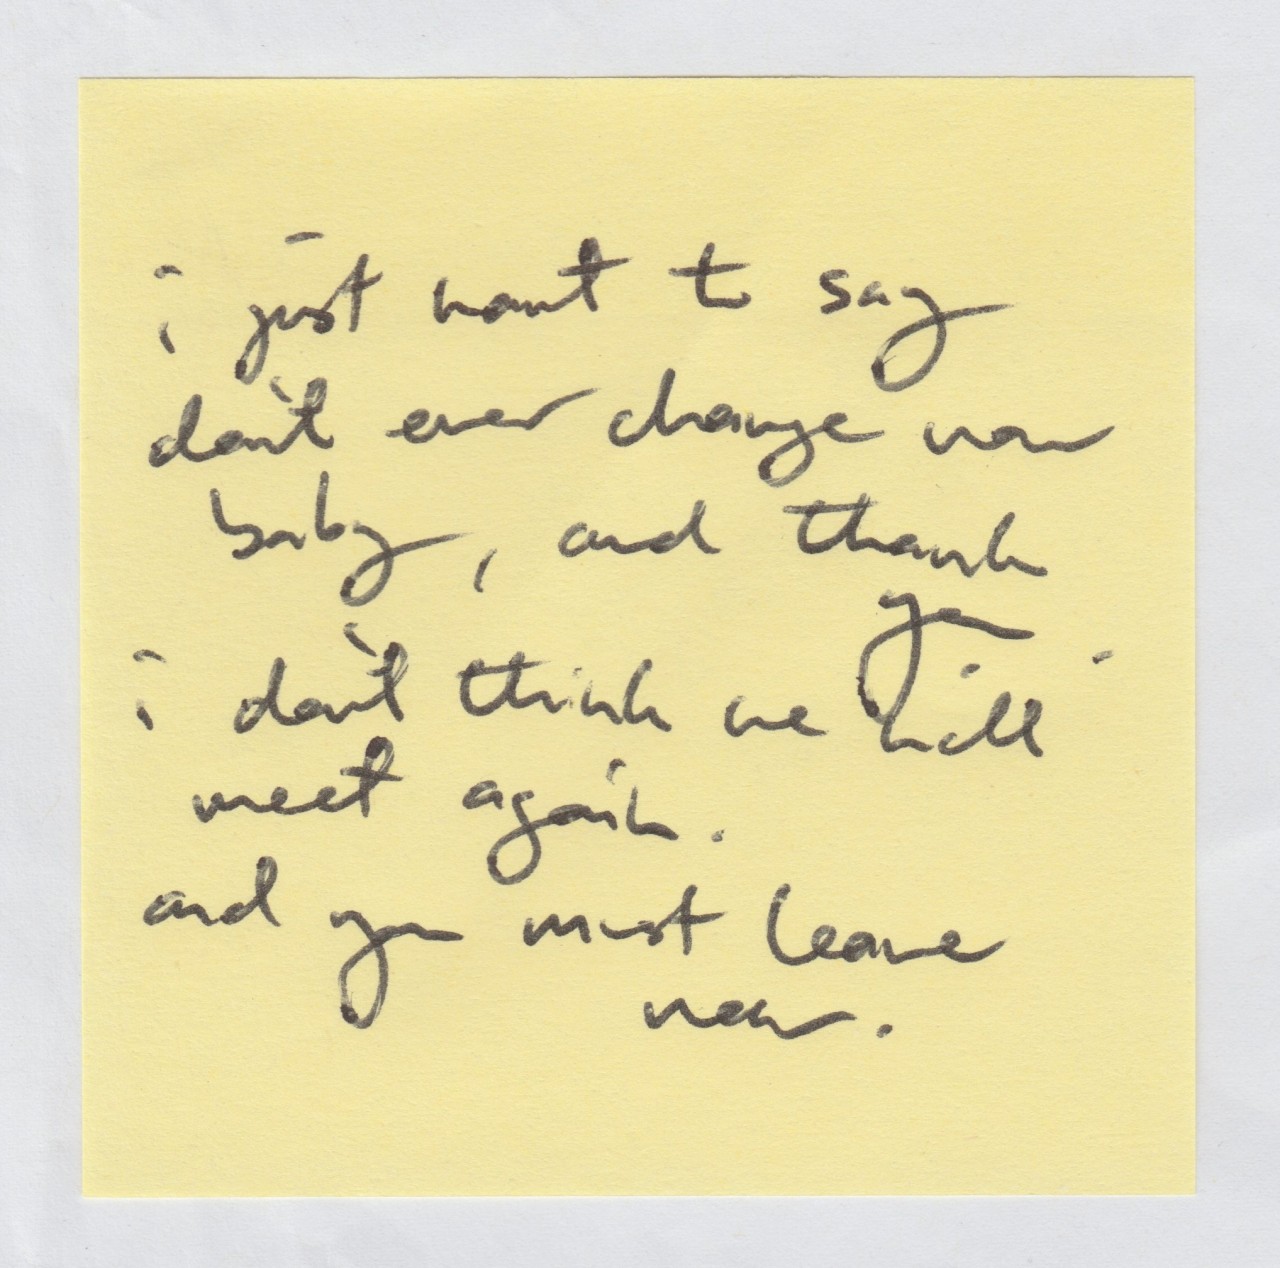 i just want to say
don't ever change now
baby, and thank
you.
i don't think we will
meet again.
and you must leave
now.